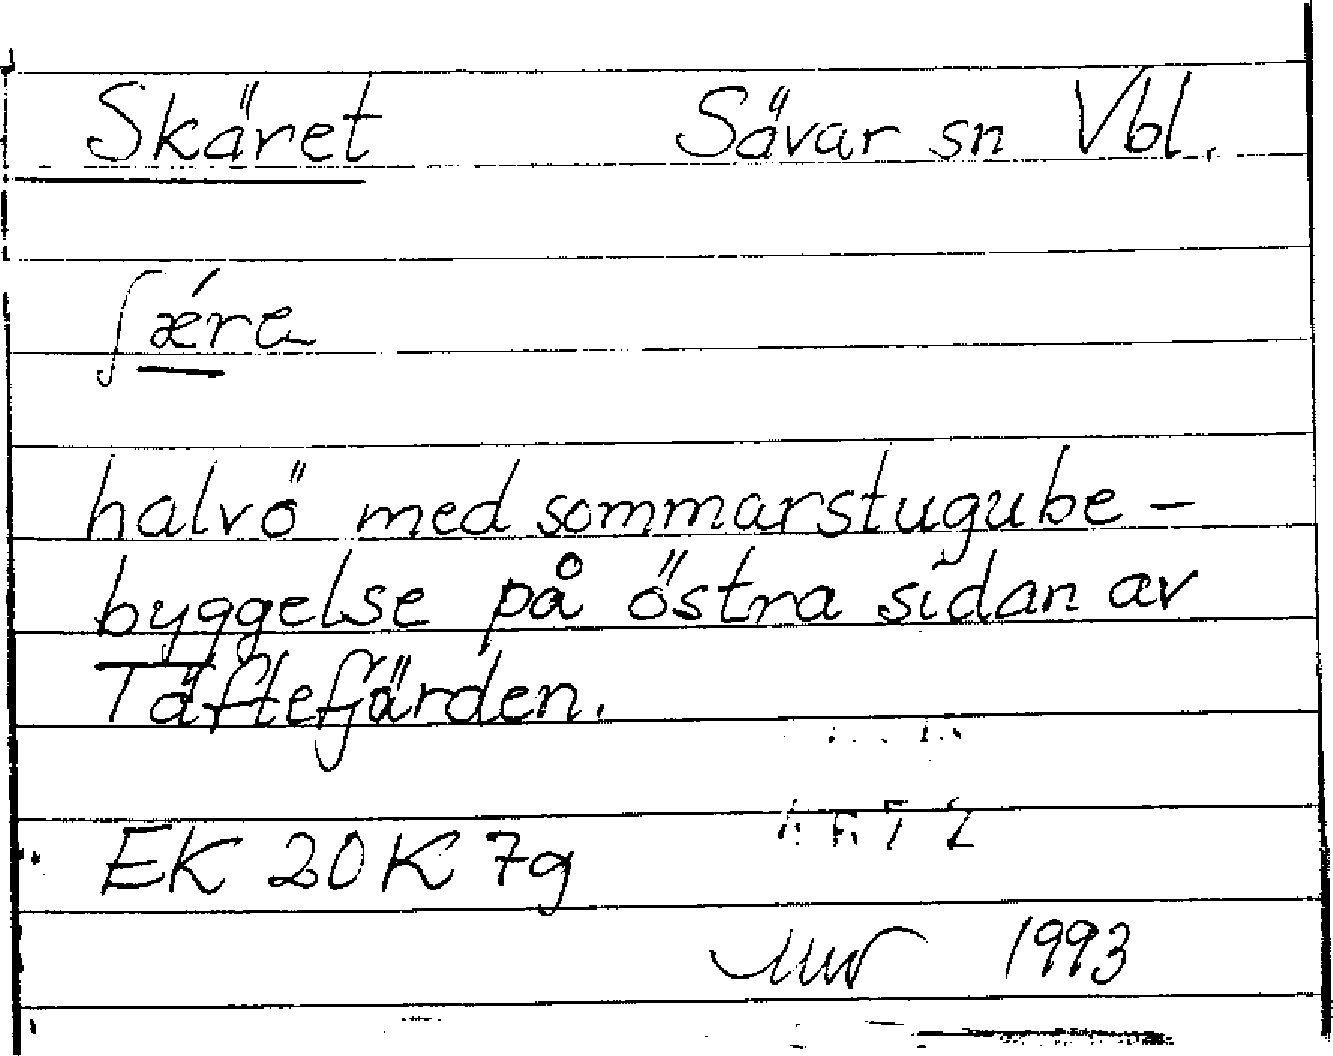 Skäret Sävar sn Vbl.
ʃǽra
halvö med sommarstugube-
byggelse på östra sidan av
Täftefjärden.
EK 20K 7g
1993